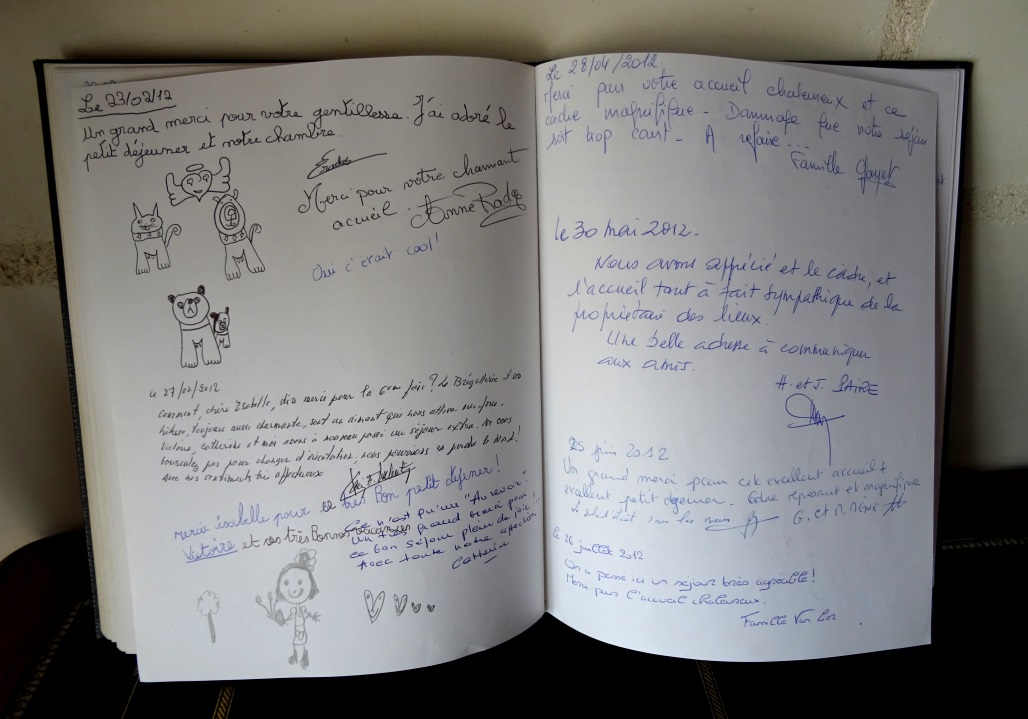 Le 23/02/12
Un grand merci pour votre gentillesse. J'ai adoré le
petit déjeuner et notre chambre.
Merci pour votre charmant
accueil. Anne
Oui c'était cool!
Le 27/02/2012
Comment, chère Isabelle, dire merci pour la 6em fois? La et son
hôtesse, toujours aussi charmante, sont un aimant que nous attire
Victoire, Catherine et moi avons à nouveau passé un séjour extra. Ne vous
bousculez pas pour changer d'orientation, nous pourrions en perdre le Nord!
Avec nos sentiments très affectueux
merci isabelle pour ce très Bon petit déjener!
Victoire et ses très Bonnes
Ce n'est qu'un "Au revoir"
Un très grand merci pour
ce bon séjour plein de joie
Avec toute notre affection
Catherine
Le 28/04/2012.
Merci pour votre accueil chaleureux et ce
cadre magnifique - Dommage que notre séjour
soit trop court - A refaire...
Famille
le 30 mai 2012.
Nous avons apprécié et le cadre, et
l'accueil tout à fait sympathique de la
propriétaire des lieux.
Une belle adresse à communiquer
aux amis.
H. et J. BAIRE
25 juin 2012
Un grand merci pour cet excellent accueil +
excellent petit dejeuner. Cadre reposant et magnifique
G. et M.
Le 26 juillet 2012
On a passé ici un séjour très agréable!
Merci pour l'accueil chaleureux.
Famille Van